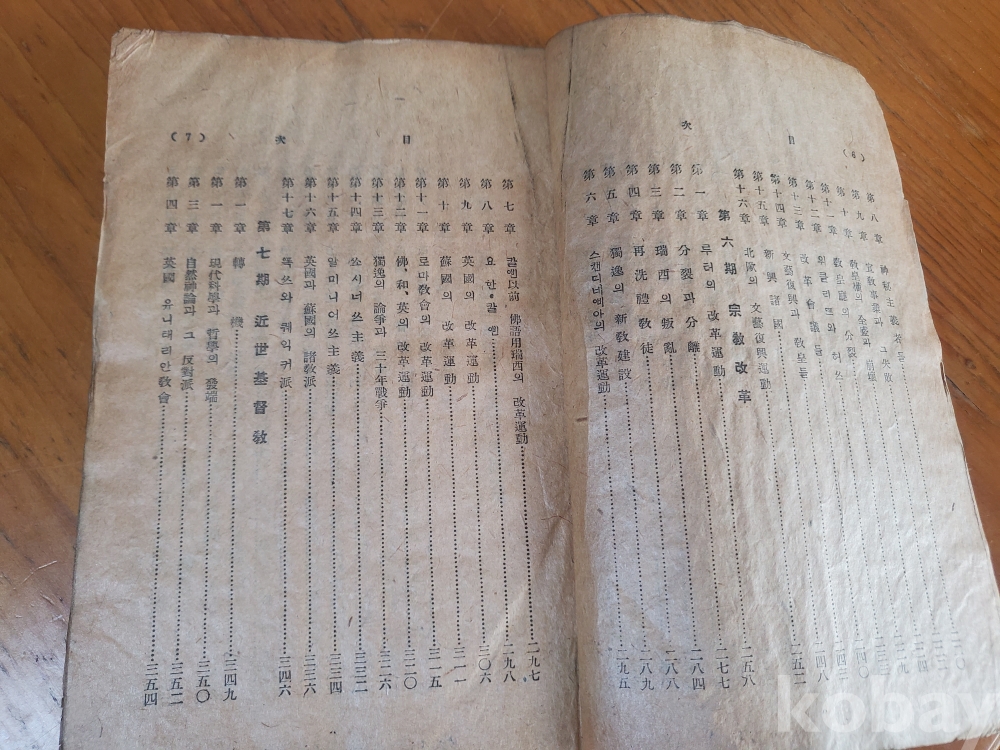 (6) 目 次
第八章 神秘主義者들
第九章 宣敎事業과 그 失敗
第十章 敎皇權의 全盛과 崩壞
第十一章 敎皇廳의 分裂
第十二章 윅클리프와 허쓰
第十三章 改革會議들
第十四章 文藝復興과 敎皇들 二五二
第十五章 新興諸國
第十六章 北歐의 文藝復興運動 二五八
第六期 宗敎改革
第一章 루터의 改革運動 二七七
第二章 分裂과 分離 二八四
第三章 瑞西의 叛亂 二八八
第四章 再洗禮敎徒 二八九
第五章 獨逸의 新敎建設
第六章 스캔디네뺴아의 改革運動 二九五
目 次 (7)
第七章 칼앤以前 佛語用瑞西의 改革運動 二九七
第八章 요한·칼앤 二九八
第九章 英國의 改革運動 三〇六
第十章 蘇國의 改革運動 三一一
第十一章 로마敎會의 改革運動 三一五
第十二章 佛,和,英의 改革運動 三二〇
第十三章 獨逸의 論爭과 三十年戰爭 三二六
第十四章 쏘시너쓰主義 三三二
第十五章 알미니어쓰主義 三三四
第十六章 英國과 蘇國의 諸敎派 三三六
第十七章 폭쓰와 퀘익커派 三四六
第七期 近世基督敎
第一章 轉機 三四九
第二章 現代科學과 哲學의 發端 三五〇
第三章 自然神論과 그 反對派 三五二
第四章 英國 유니태리안敎會 三五四
kobay